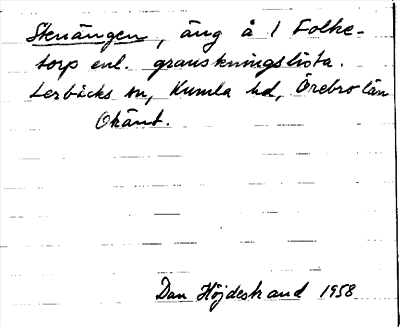 Stenängen, äng å 1 Folke-
torp enl. granskningslista.
Lerbäcks sn, Kumla hd, Örebro län
Okänt.
Dan Höjdestrand 1958